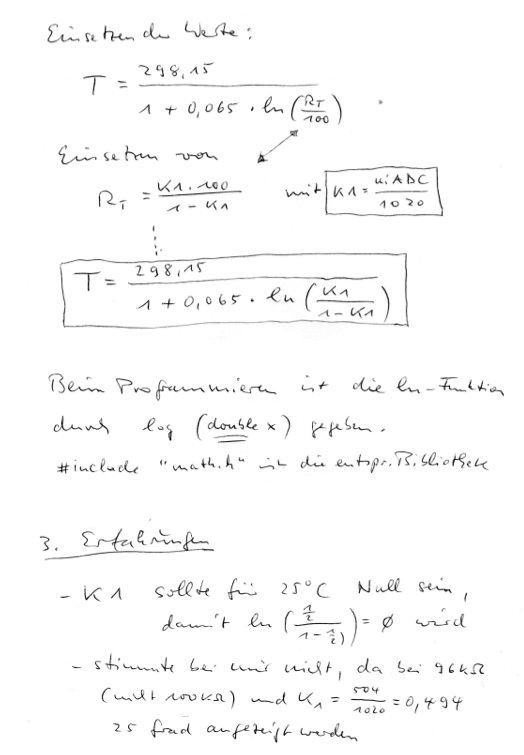 Einsetzen der Werte:
T = 298,15 / (1 + 0,065 · ln(RT/100))
Einsetzen von
RT = K1·100 / (1 - K1) mit K1 = uiADC/1020
T = 298,15 / (1 + 0,065 · ln(K1/(1-K1)))
Beim Programmieren ist die ln-Funktion
durch log (double x) gegeben.
#include "math.h" ist die entspr. Bibliothek
3. Erfahrungen
- K1 sollte für 25°C Null sein,
damit ln((1/2)/(1-1/2)) = ø wird
- stimmte bei mir nicht, da bei 96kΩ
(nicht 100kΩ) und K1 = 504/1020 = 0,494
25 Grad angezeigt werden